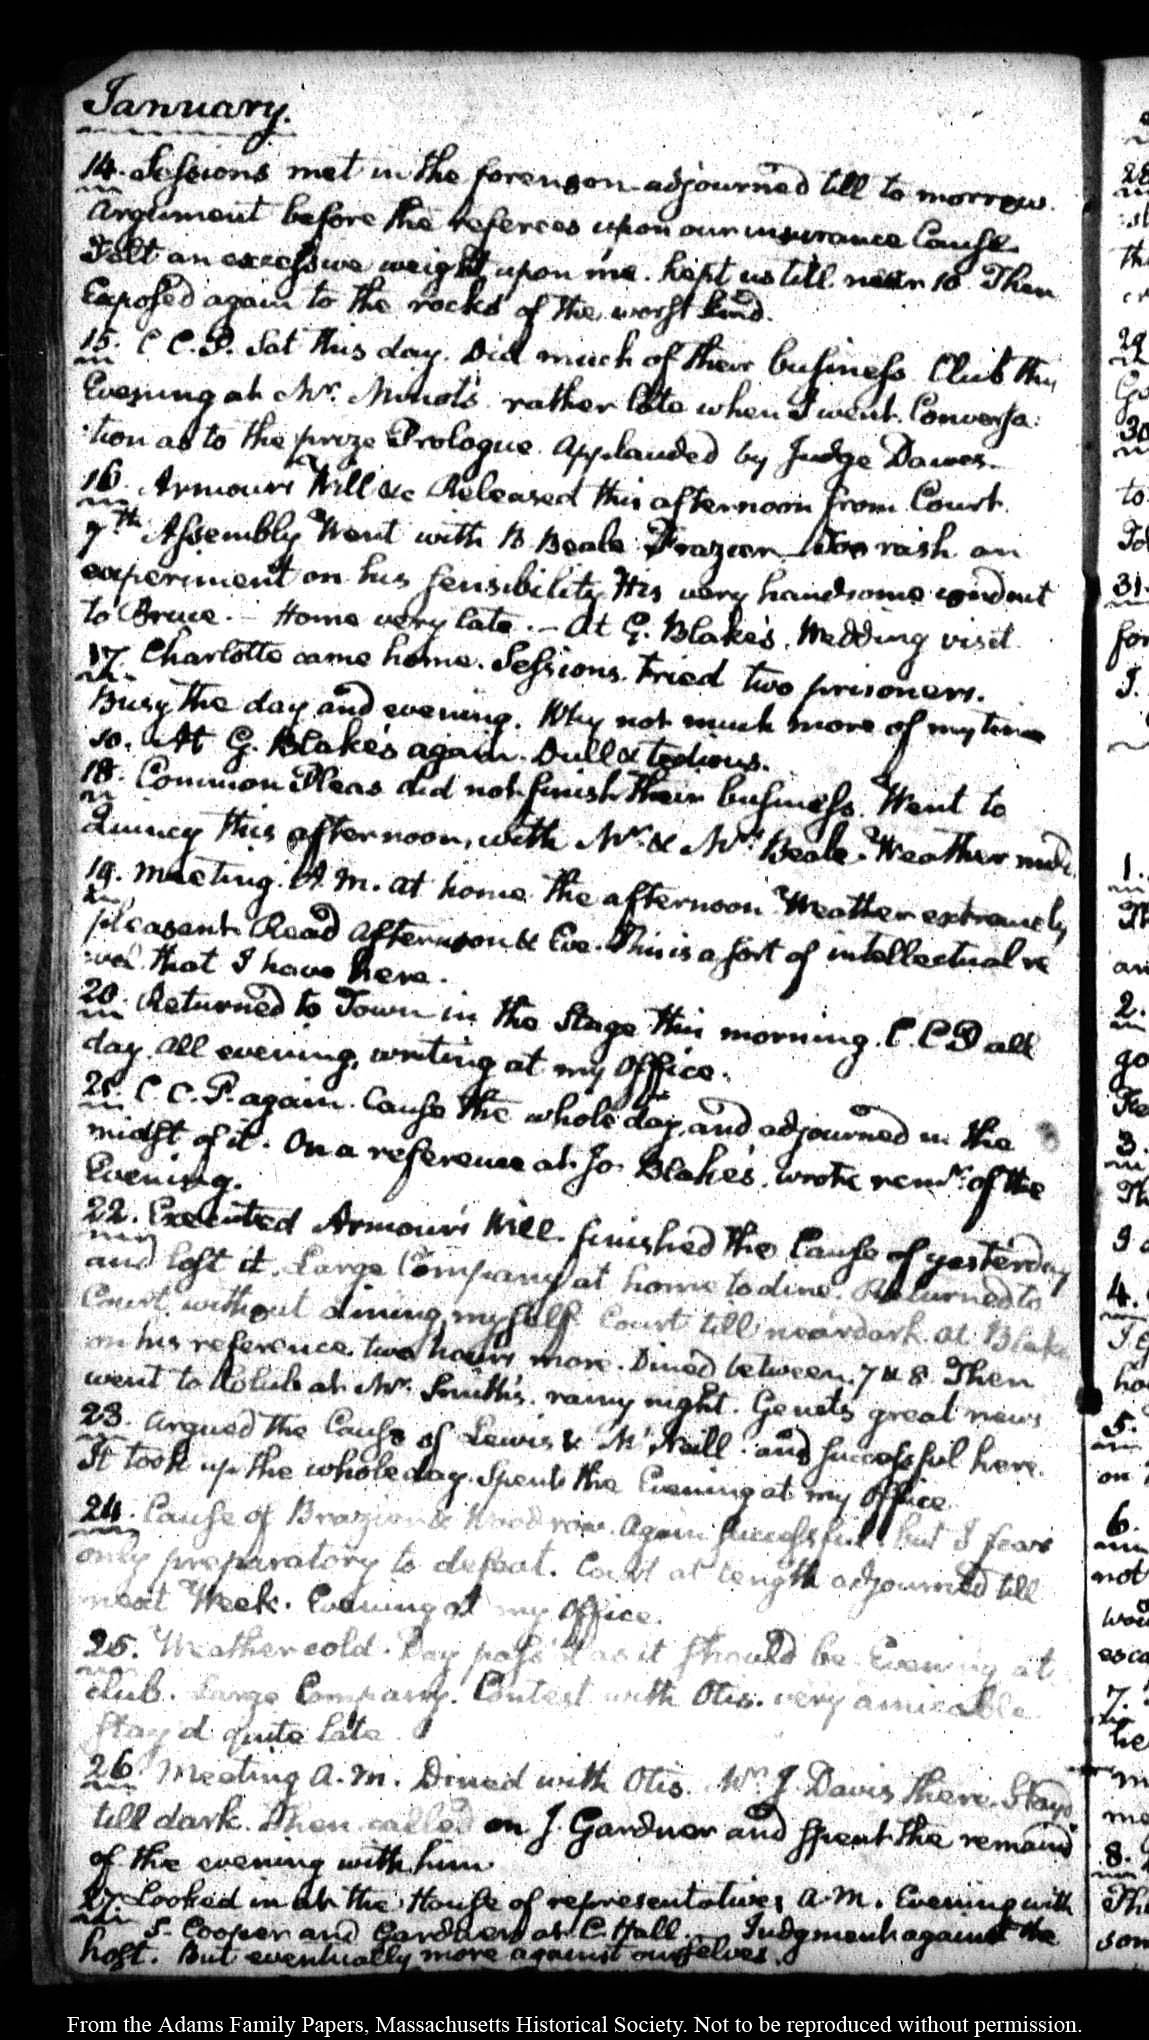 January.
14. Sessions met in the forenoon adjourned till to morrow.
Argument before the referees upon our insurance Cause.
Felt an excessive weight upon me. kept us till near 10. Then
Exposed again to the rocks of the worst kind.
15. C. C. P. Sat this day. Did much of their business. Club this
Evening at Mr. Minot's rather late when I went. Conversa:
:tion as to the prize Prologue. Applauded by Judge Dawes.
16. Armour's Will &c Released this afternoon from Court.
7th Assembly Went with B. Beale Frazier. Too rash an
experiment on his sensibility. His very handsome conduct
to Bruce. — Home very late. — At G. Blake's. Wedding visit.
17. Charlotte came home. Sessions. Tried two prisoners.
Busy the day and evening. Why not much more of my time
so. At G. Blake's again. Dull & tedious.
18. Common Pleas did not finish their business. Went to
Quincy this afternoon, with Mr. & Mrs. Beale. Weather mild.
19. Meeting. A.M. at home the afternoon Weather extremely
pleasant. Read afternoon & Eve. This is a sort of intellectual re
:vel that I have here.
20. Returned to Town in the Stage this morning. C. C. P. all
day. All evening, writing at my Office.
21. C. C. P. again. Cause the whole day, and adjourned in the
midst of it. On a reference at Jo. Blake's. wrote remr. of the
Evening.
22. Executed Armour's Will. finished the Cause of yesterday
and lost it. Large Company at home to dine. Returned to
Court, without dining myself. Court till near dark. at Blake
on his reference two hours more. Dined between 7 & 8. Then
went to Club at Mr. Smith's. rainy night. Genet's great news
23. Argued the Cause of Lewis & McNeill. and successful here.
It took up the whole day. Spent the Evening at my Office.
24. Cause of Brazier & Woodrow. Again successful. but I fear
only preparatory to defeat. Court at length adjourned till
next Week. Evening at my Office.
25. Weather cold. Day pass'd as it should be. Evening at
club. Large Company. Contest with Otis. very amicable
Stay'd quite late.
26. Meeting A.M. Dined with Otis. Mr. J. Davis there. Stayd
till dark. Then called on J. Gardner and spent the remaindr
of the evening with him
27. Looked in at the House of representatives A.M. Evening with
S. Cooper and Gardner at C. Hall. Judgment against the
host. But eventually more against ourselves.
From the Adams Family Papers, Massachusetts Historical Society. Not to be reproduced without permission.